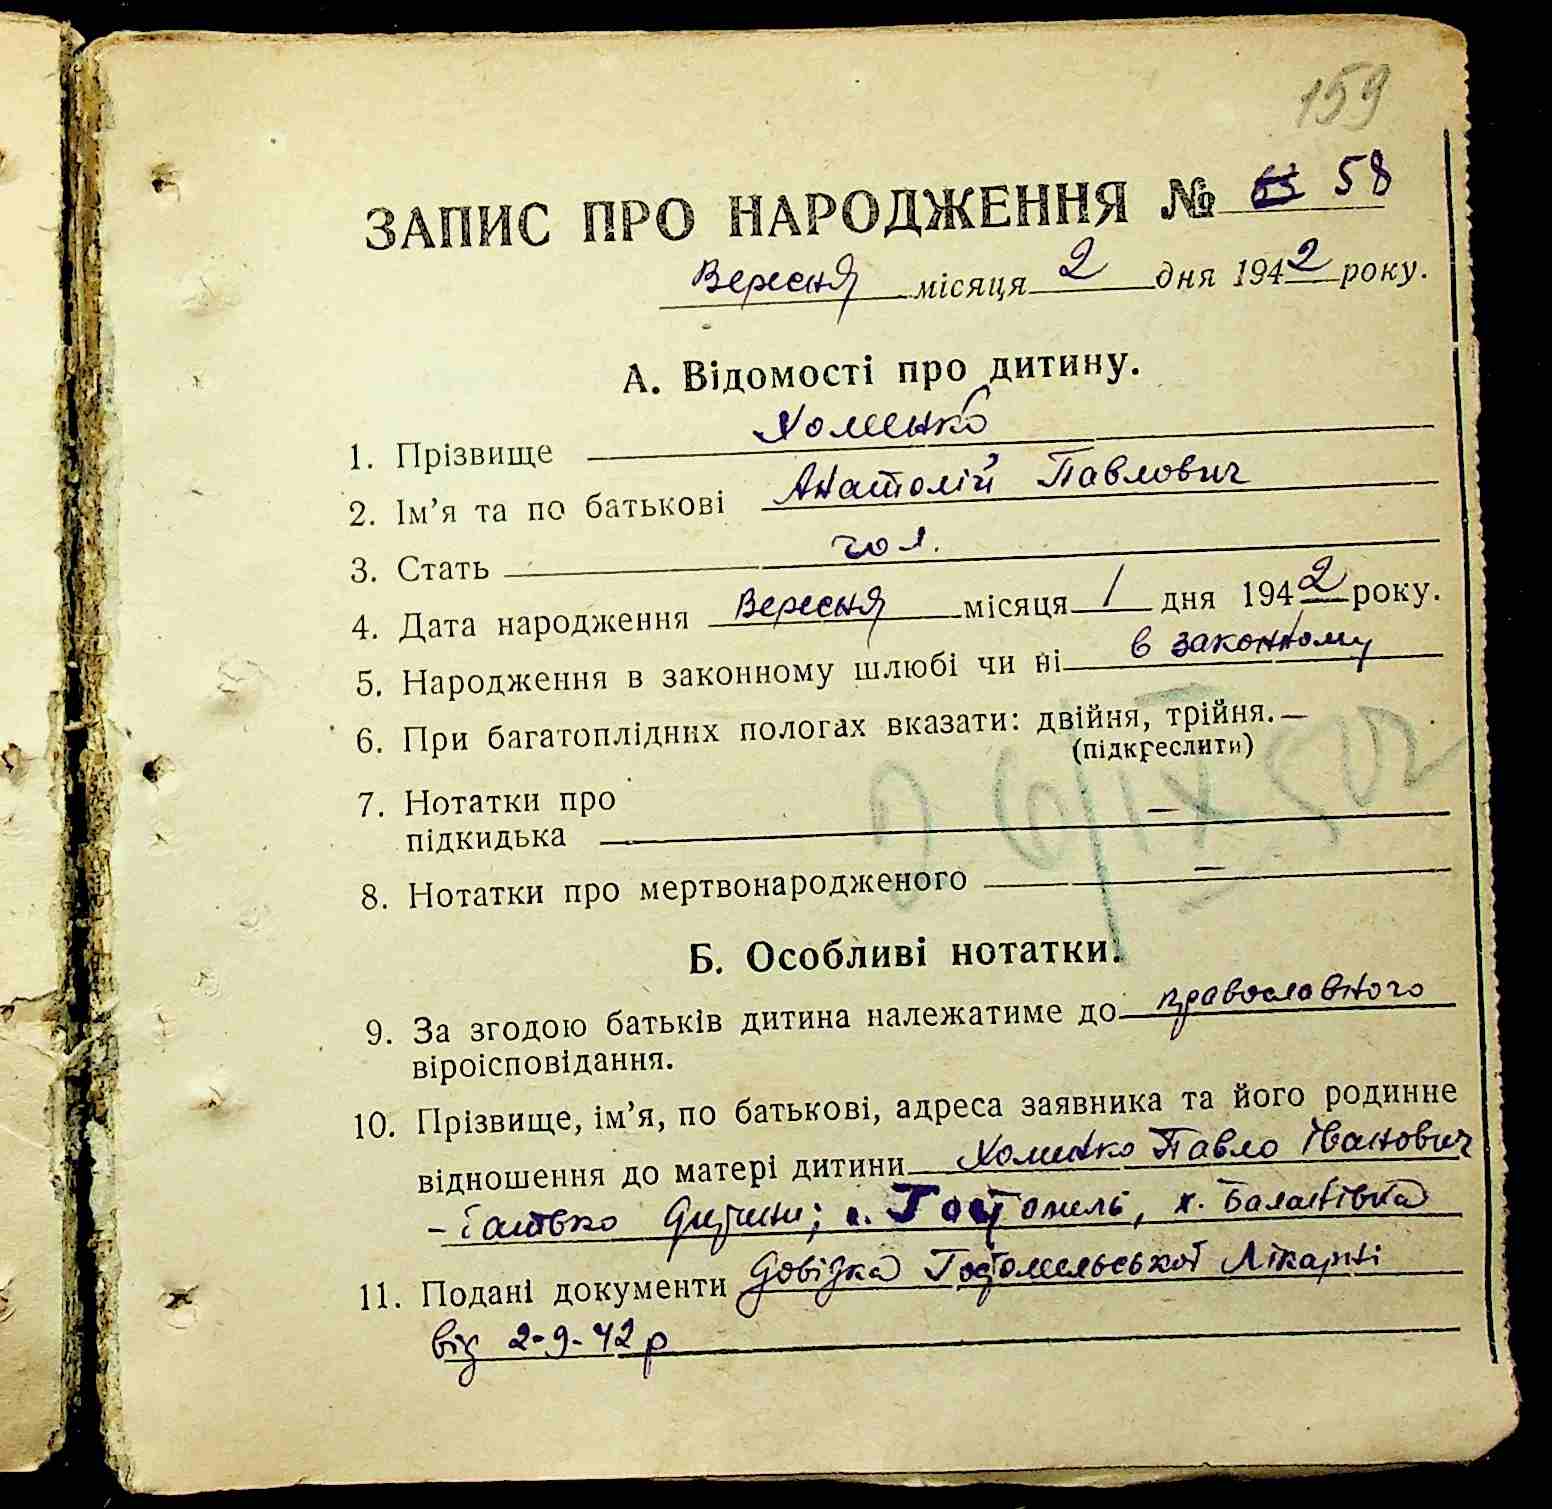 159
ЗАПИС ПРО НАРОДЖЕННЯ № 58
Вересня місяця 2 дня 1942 року.
А. Відомості про дитину.
1. Прізвище Хоменко
2. Ім'я та по батькові Анатолій Павлович
3. Стать чол.
4. Дата народження Вересня місяця 1 дня 1942 року.
5. Народження в законному шлюбі чи ні в законному
6. При багатоплідних пологах вказати: двійня, трійня. —
(підкреслити)
7. Нотатки про
підкидька —
8. Нотатки про мертвонародженого —
Б. Особливі нотатки.
9. За згодою батьків дитина належатиме до православного
віроісповідання.
10. Прізвище, ім'я, по батькові, адреса заявника та його родинне
відношення до матері дитини Хоменко Павло Іванович
- батько дитини; с. Гостомель, х. Баланівка
11. Подані документи довідка Гостомельської Лікарні
від 2-9-42 р